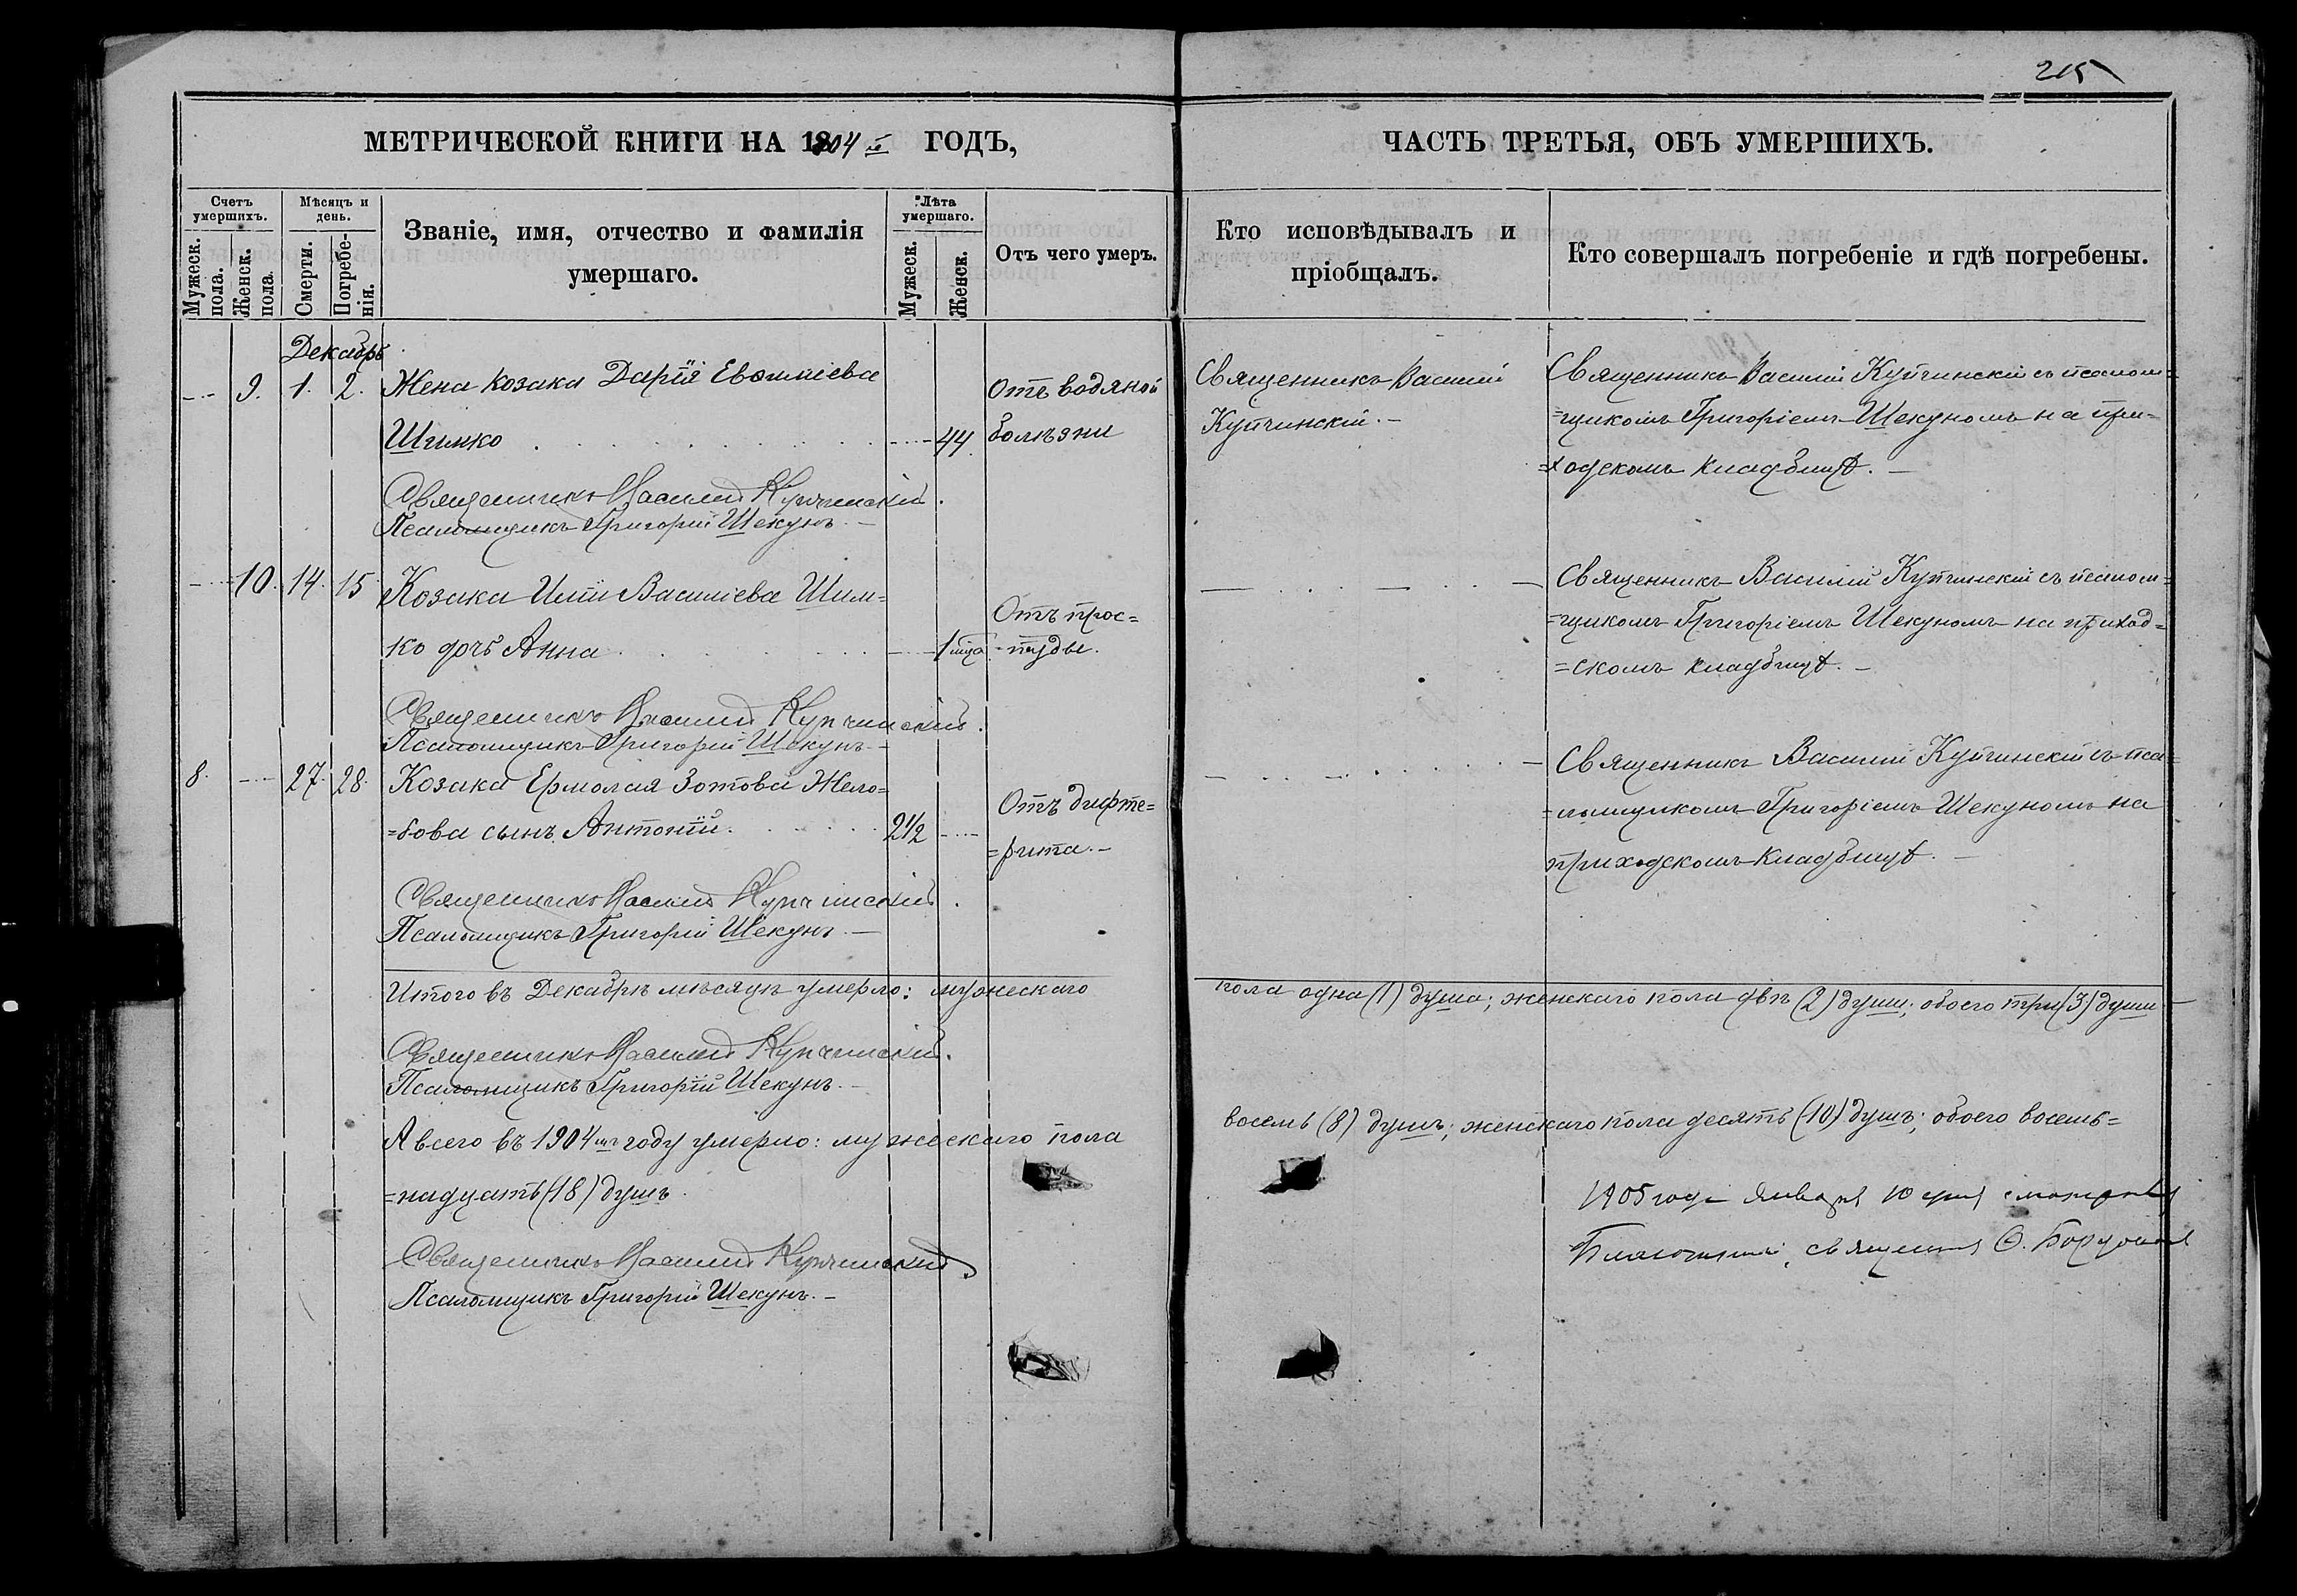 215
МЕТРИЧЕСКОЙ КНИГИ НА 1904 й ГОДЪ,
Счетъ умершихъ.
Мужеск. пола.
Женск. пола.
Мѣсяцъ и день.
Смерти.
Погребенія.
Званіе, имя, отчество и фамилія
умершаго.
Лѣта умершаго.
Мужеск.
Женск.
Отъ чего умеръ.
ЧАСТЬ ТРЕТЬЯ, ОБЪ УМЕРШИХЪ.
Кто исповѣдывалъ и
пріобщалъ.
Кто совершалъ погребеніе и гдѣ погребены.
Декабрь
9. 1. 2. Жена козака Дарія Евфиміева
Отъ водяной
Шимко 44
болѣзни
Священникъ Василій Купчинскій.
Псаломщикъ Григорій Шекунъ. —
Священникъ Василій
Купчинскій. —
Священникъ Василій Купчинскій съ псалом=
=щикомъ Григоріемъ Шекуномъ на при=
=ходскомъ кладбищѣ. —
10. 14. 15 Козака Иліи Василіева Шим=
Отъ прос=
ко дочь Анна 1 мца
=туды.
Священникъ Василій Купчинскій.
Псаломщикъ Григорій Шекунъ. —
Священникъ Василій Купчинскій съ псалом=
=щикомъ Григоріемъ Шекуномъ на приход=
=скомъ кладбищѣ. —
8. 27. 28. Козака Ермолая Зотова Жело=
Отъ дифте=
=бова сынъ Антоній. 2 1/2
=рита. —
Священникъ Василій Купчинскій.
Псаломщикъ Григорій Шекунъ. —
Священникъ Василій Купчинскій съ пса=
=ломщикомъ Григоріемъ Шекуномъ на
приходскомъ кладбищѣ. —
Итого въ Декабрѣ мѣсяцѣ умерло: мужескаго пола одна (1) душа; женскаго пола двѣ (2) души; обоего три (3) души
Священникъ Василій Купчинскій.
Псаломщикъ Григорій Шекунъ. —
А всего въ 1904 мъ году умерло: мужескаго пола восемь (8) душъ; женскаго пола десять (10) душъ; обоего восемь=
=надцать (18) душъ.
Священникъ Василій Купчинскій.
Псаломщикъ Григорій Шекунъ. —
1905 года Января 10 дня
Благочинный, священникъ